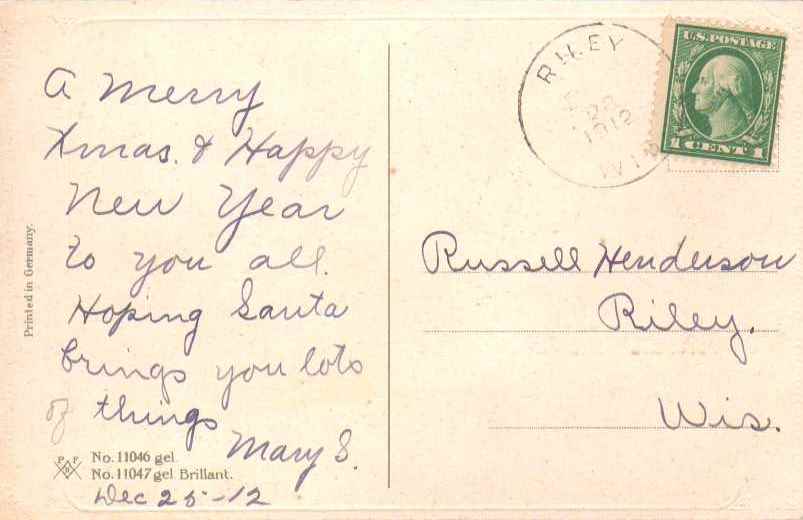 A Merry
Xmas. & Happy
New Year
to you all.
Hoping Santa
brings you lots
of things
Mary S.
Dec 25-12
Printed in Germany.
PFB
No. 11046 gel.
No. 11047 gel Brillant.
RILEY
1912
WIS
U.S. POSTAGE
1 CENT 1
Russell Henderson
Riley,
Wis.